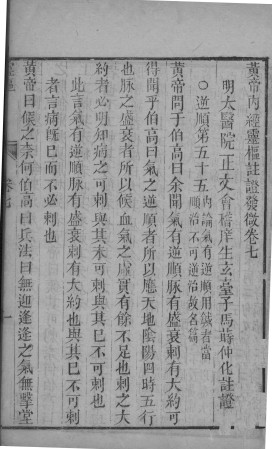 黃帝內經靈樞註證發微卷七
明太醫院正文會稽庠生玄臺子馬蒔仲化註證
○逆順第五十五內論氣有逆順用鍼者當順治不可逆治故名篇
黃帝問于伯高曰余聞氣有逆順脉有盛衰刺有大約可
得聞乎伯高曰氣之逆順者所以應天地陰陽四時五行
也脉之盛衰者所以候血氣之虛實有餘不足也刺之大
約者必明知病之可刺與其未可刺與其已不可刺也
此言氣有逆順脉有盛衰刺有大約也與其已不可刺
者言病既已而不必刺也
黃帝曰候之柰何伯高曰兵法曰無迎逢逢之氣無擊堂
卷七
一